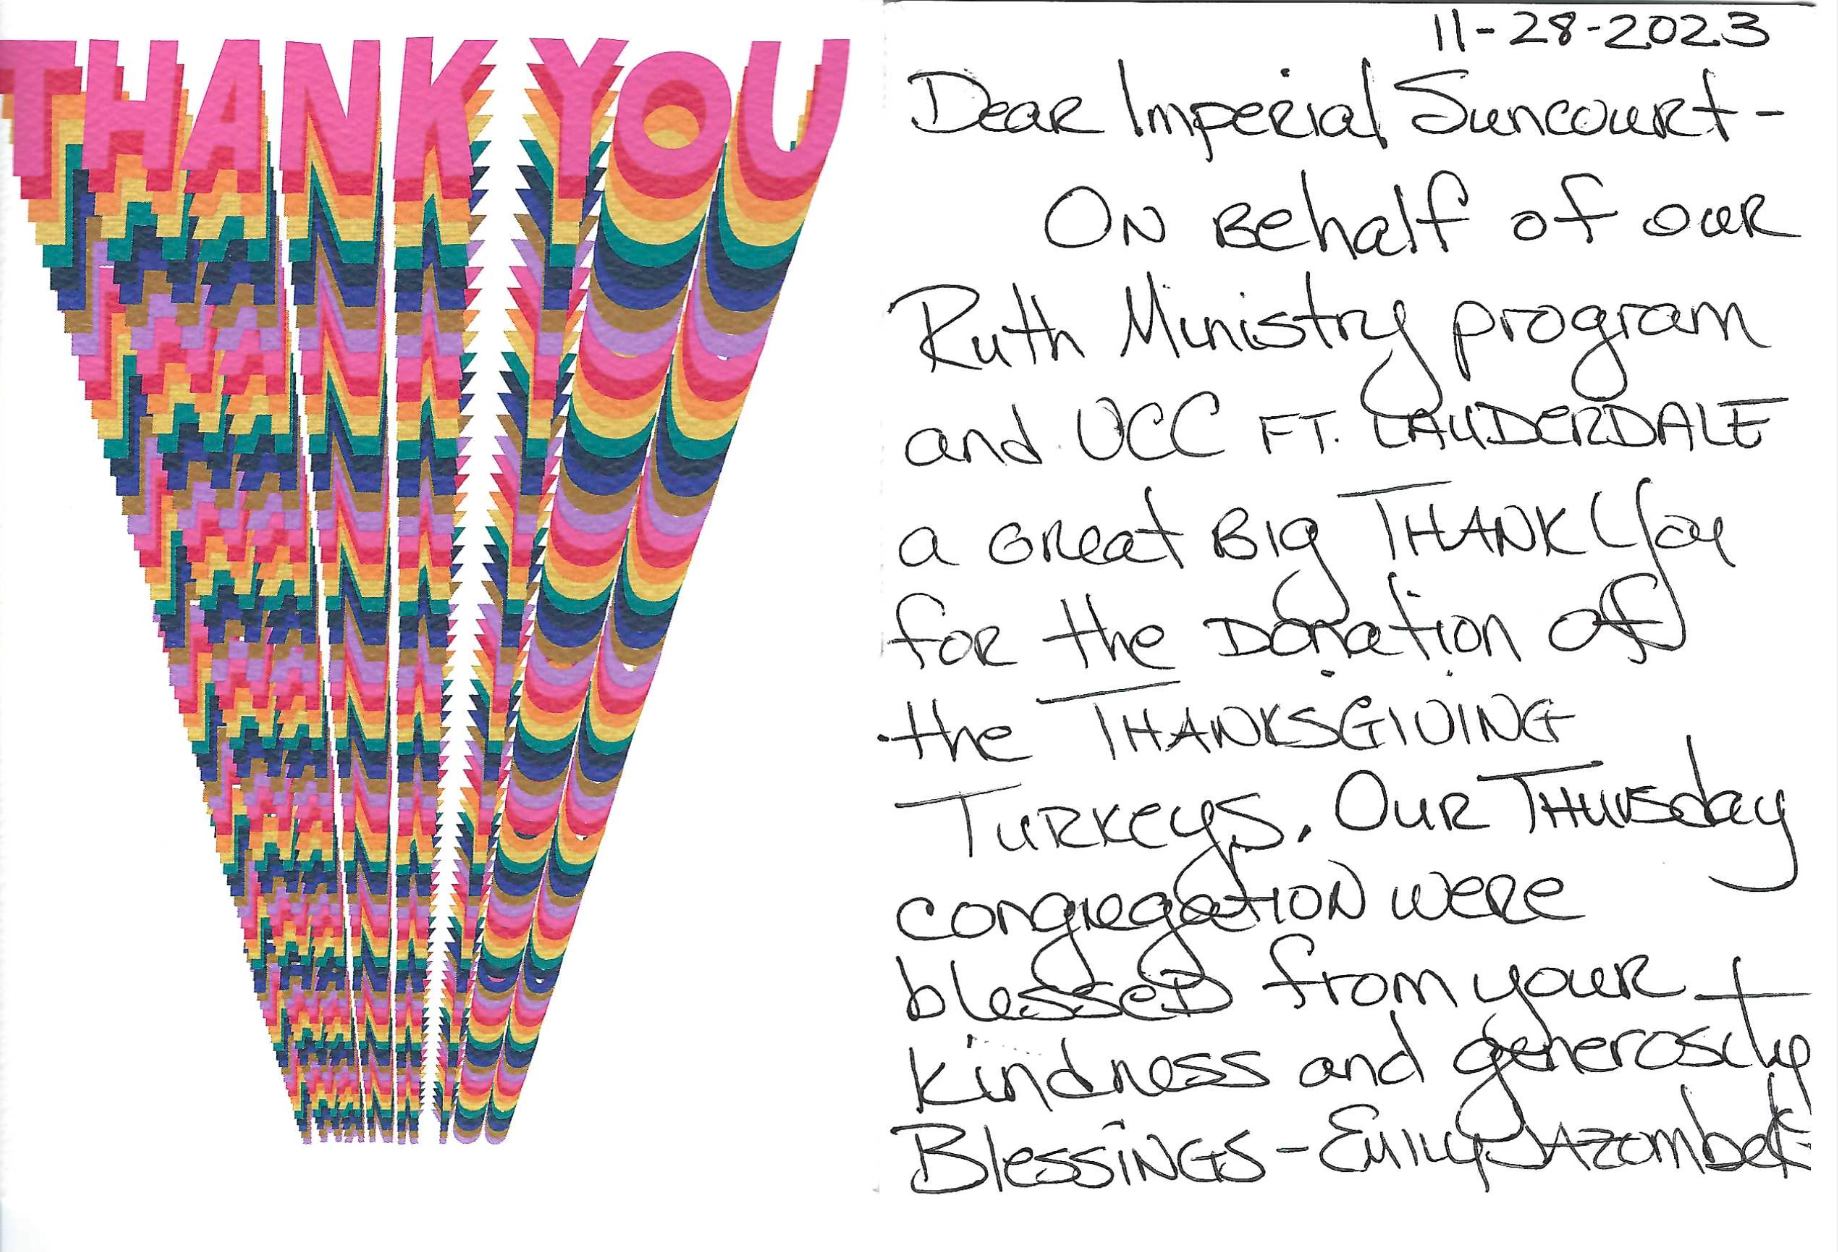 THANK YOU
11-28-2023
Dear Imperial Suncourt-
ON Behalf of our
Ruth Ministry program
and UCC FT. LAUDERDALE
a Great Big THANK You
for the Donation of
the THANKSGIVING
Turkeys. Our Thursday
congregation were
blessed from your
kindness and generosity
Blessings - Emily